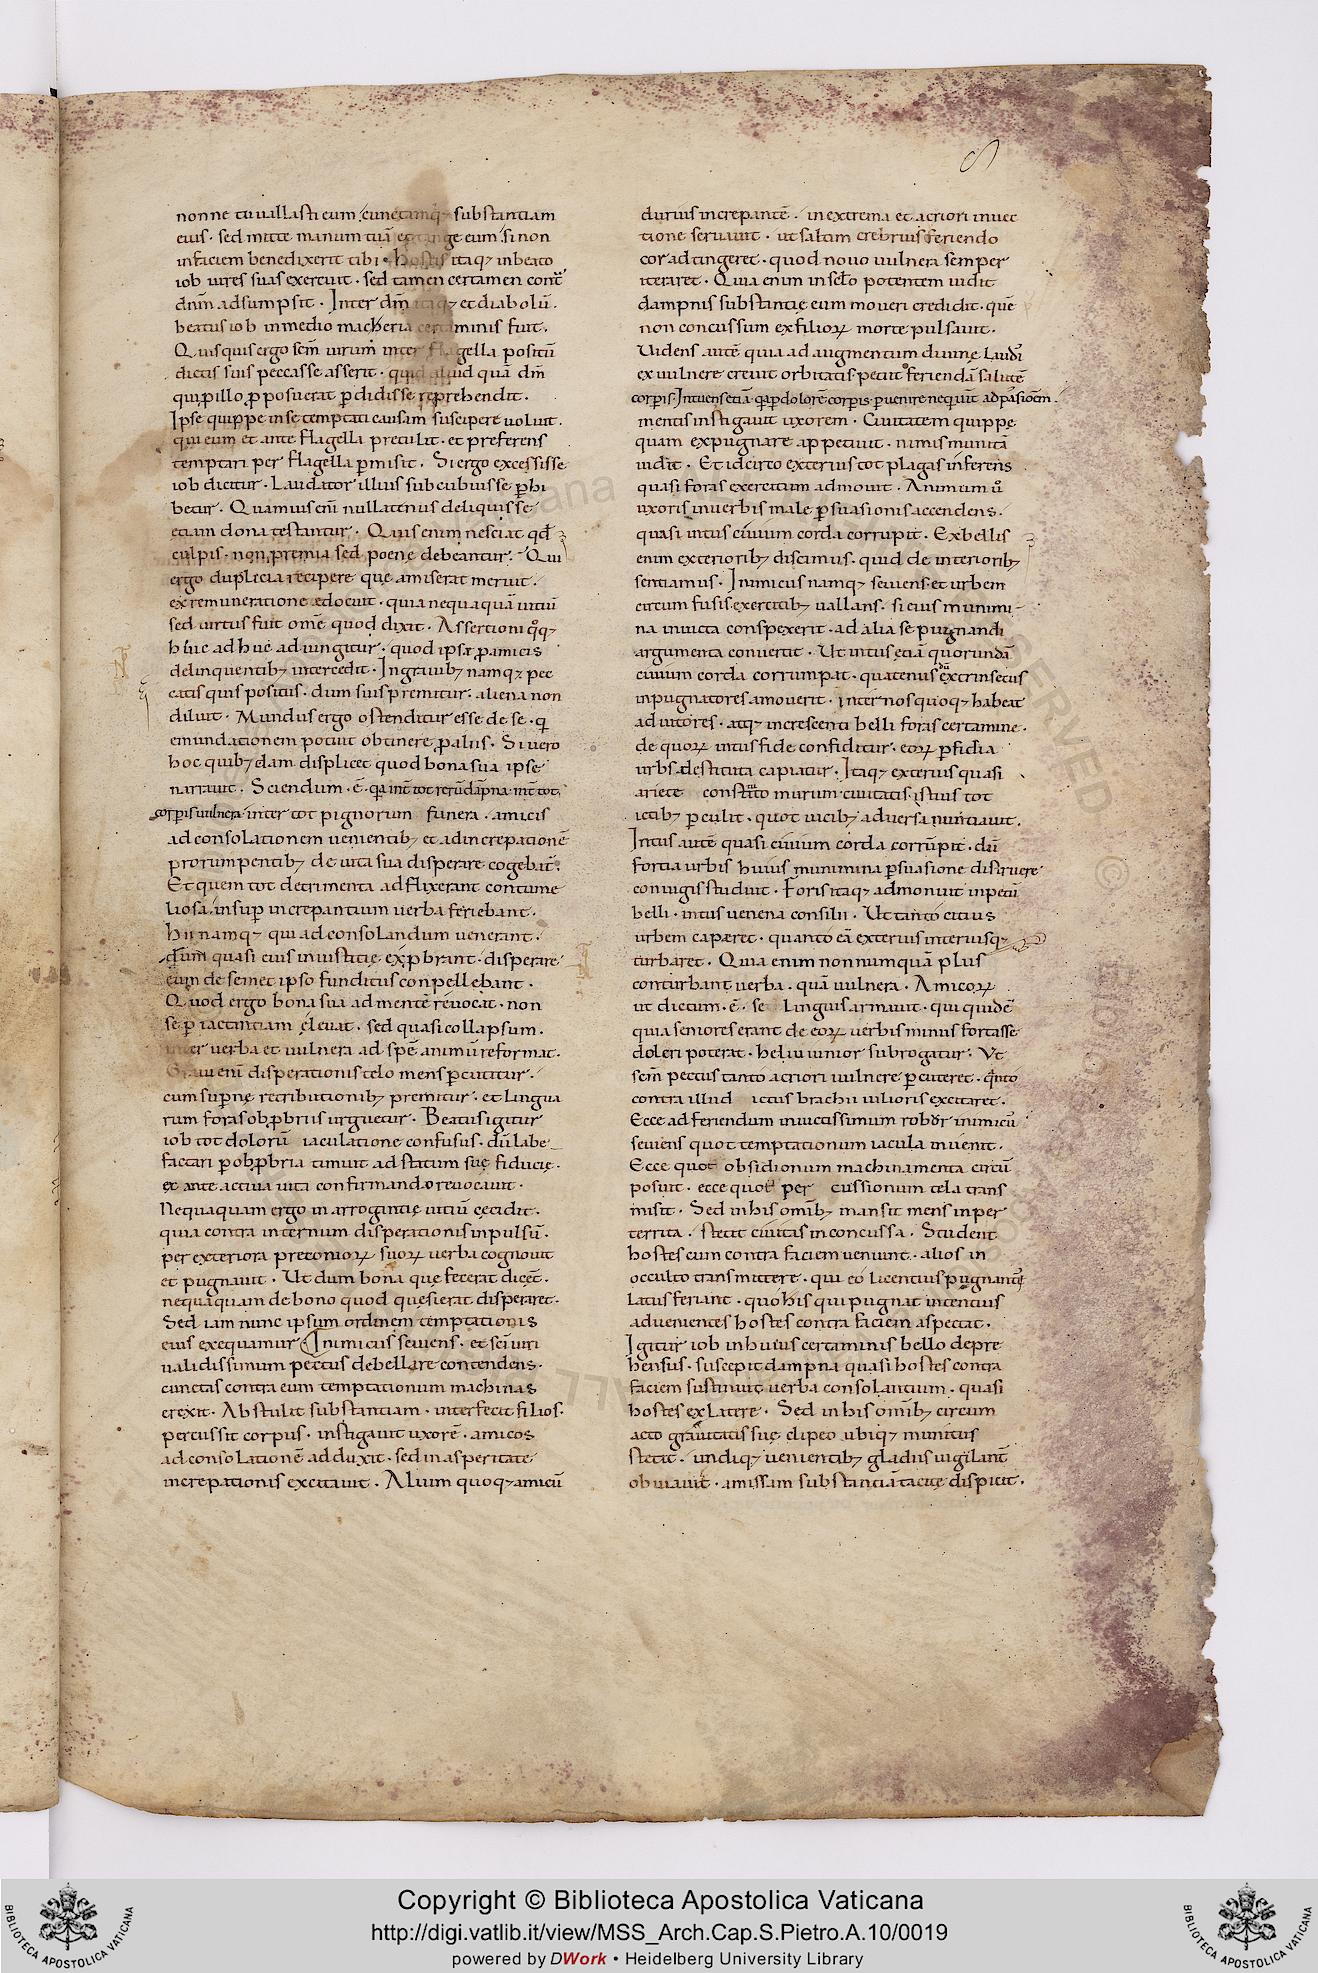 nonne tu uallasti eum. cunctamq; substantiam
eius. sed mitte manum tuā et tange eum. si non
infaciem benedixerit tibi. hostis itaq; inbeato
iob uires suas exercuit. sed tamen certamen contr̄
dn̄m adsumpsit. Inter dm̄ itaq; et diabolū.
beatus iob inmedio macheria certaminis fuit.
Quisquis ergo sc̄m uirum inter flagella positū
dictis suis peccasse asserit. quid aliud quā dm̄
qui ꝓillo ꝓposuerat ꝑdidisse reprehendit.
Ipse quippe inse temptati causam suscipere uoluit.
qui eum et ante flagella pretulit. et preferens
temptari per flagella ꝑmisit. Siergo excessisse
iob dicitur. Laudator illius subcubuisse ꝑhi
betur. Quamuis eni nullatenus deliquisse
etiam dona testantur. Quis enim nesciat qđ
culpis. non premia sed poene debeantur. Qui
ergo duplicia recipere que amiserat meruit.
exremuneratione edocuit. quia nequaquā uitiū
sed uirtus fuit omē quod dixit. Assertioni qq;
huic adhuc adiungitur. quod ipse ꝓamicis
delinquentib; intercedit. Ingrauib; namq; pec
catis quis positus. dum suis premitur. aliena non
diluit. Mundus ergo ostenditur esse de se. q
emundationem potuit obtinere ꝓaliis. Si uero
hoc quib;dam displicet quod bona sua ipse
narrauit. Sciendum. ē. qa int̄ tot rerū dāpna. int̄ tot
corporis uulnera. inter tot pignorum funera. amicis
ad consolationem uenientib; et adincrepationē
prorumpentib; de uita sua disperare cogebat.
Et quem tot detrimenta adflixerant contume
liosa. insuꝑ increpantium uerba feriebant.
hii namq; qui ad consolandum uenerant.
dum quasi eius iniustitię exꝓbrant. disperare
eum de semet ipso funditus conpellebant.
Quod ergo bona sua ad mentē reuocat. non
se ꝑ iactantiam eleuat. sed quasi collapsum.
inter uerba et uulnera ad spē animū reformat.
Graui enī disperationis telo mens ꝑcutitur.
cum suꝑnę retributionib; premitur. et lingua
rum foras obꝓbriis urguetur. Beatus igitur
iob tot dolorū iaculatione confusus. dū labe
factari ꝑ obꝓbria timuit ad statum suę fiducię.
ex ante actiua uita confirmando reuocauit.
Nequaquam ergo in arrogantię uitiū cecidit.
quia contra internum disperationis inpulsū.
per exteriora preconiorꝝ suorꝝ uerba cognouit
et pugnauit. Ut dum bona que fecerat dicet̄.
nequaquam de bono quod quęsierat disperaret.
Sed iam nunc ipsum ordinem temptationis
eius exequamur. Inimicus seuiens. et sc̄i uiri
ualidissimum pectus debellare contendens.
cunctas contra eum temptationum machinas
erexit. Abstulit substantiam. interfecit filios.
percussit corpus. instigauit uxorē. amicos
ad consolationē adduxit. sed in asperitate
increpationis excitauit. Alium quoq; amicū
durius increpantē. in extrema et acriori inuec
tione seruauit. ut saltim crebrius feriendo
cor adtingeret. quod nouo uulnera semper
iteraret. Quia enim in scl̄o potentem uidit
dampnis substantię eum moueri credidit. quē
non concussum ex filiorꝝ morte pulsauit.
Uidens autē quia ad augmentum diuinę laudis
ex uulnere creuit orbitatis petiit feriendā salutē
corporis. Intuens etiā q̄a ꝑ dolorē corporis ꝑuenire nequiuit ad passionē.
mentis instigauit uxorem. Ciuitatem quippe
quam expugnare appetiuit. nimis munitā
uidit. Et idcirco exterius tot plagas inferens
quasi foras exercitum admouit. Animum u̇
uxoris in uerbis male ꝑsuasionis accendens.
quasi intus ciuium corda corrupit. Exbellis
enim exteriorib; discimus. quid de interiorib;
sentiamus. Inimicus namq; seuiens. et urbem
circum fusis exercitib; uallans. si eius munimi
na inuicta conspexerit. ad alia se pugnandi
argumenta conuertit. Ut intus etiā quorundā
ciuium corda corrumpat. quatenus dū extrinsecus
inpugnatores amouerit. internos quoq; habeat
adiutores. atq; increscenti belli foris certamine.
de quorꝝ intus fide confiditur. eorꝝ ꝑfidia
urbs destituta capiatur. Itaq; exterius quasi
ariete constituto murum ciuitatis istius tot
ictib; ꝑculit. quot uicib; aduersa nuntiauit.
Intus autē quasi ciuium corda corrūpit. dū
fortia urbis huius munimina ꝑsuasione distruere
coniugis studuit. Foris itaq; admouit inpetū
belli. intus uenena consilii. Ut tanto citius
urbem caperet. quanto eā exterius interiusq;
turbaret. Quia enim nonnumquā plus
conturbant uerba. quā uulnera. Amicorꝝ
ut dictum. ē. se linguis armauit. qui quidē
quia seniores erant de eorꝝ uerbis minus fortasse
doleri poterat. heliu iunior subrogatur. Ut
sc̄m pectus tanto acriori uulnere ꝑcuteret. q̄nto
contra illud ictus brachii uilioris excitaret.
Ecce ad feriendum inuictissimum robor inimicū
seuiens quot temptationum iacula inuenit.
Ecce quot obsidionum machinamenta circū
posuit. ecce quot per cussionum tela trans
misit. Sed in his omīb; mansit mens inper
territa. stetit ciuitas inconcussa. Student
hostes cum contra faciem ueniunt. alios in
occulto transmittere. qui eo licentius pugnantis
latus feriant. quo his qui pugnat intentius
aduenientes hostes contra faciem aspectat.
Igitur iob in huius certaminis bello depre
hensus. suscepit dampna quasi hostes contra
faciem sustinuit. uerba consolantium. quasi
hostes ex latere. Sed in his omīb; circum
acto grauitatis suę clipeo ubiq; munitus
stetit. undiq; uenientib; gladiis uigilant̄
obuiauit. amissam substantiā tacite dispicit.
Copyright © Biblioteca Apostolica Vaticana
http://digi.vatlib.it/view/MSS_Arch.Cap.S.Pietro.A.10/0019
powered by DWork • Heidelberg University Library
BIBLIOTECA APOSTOLICA VATICANA
BIBLIOTECA APOSTOLICA VATICANA